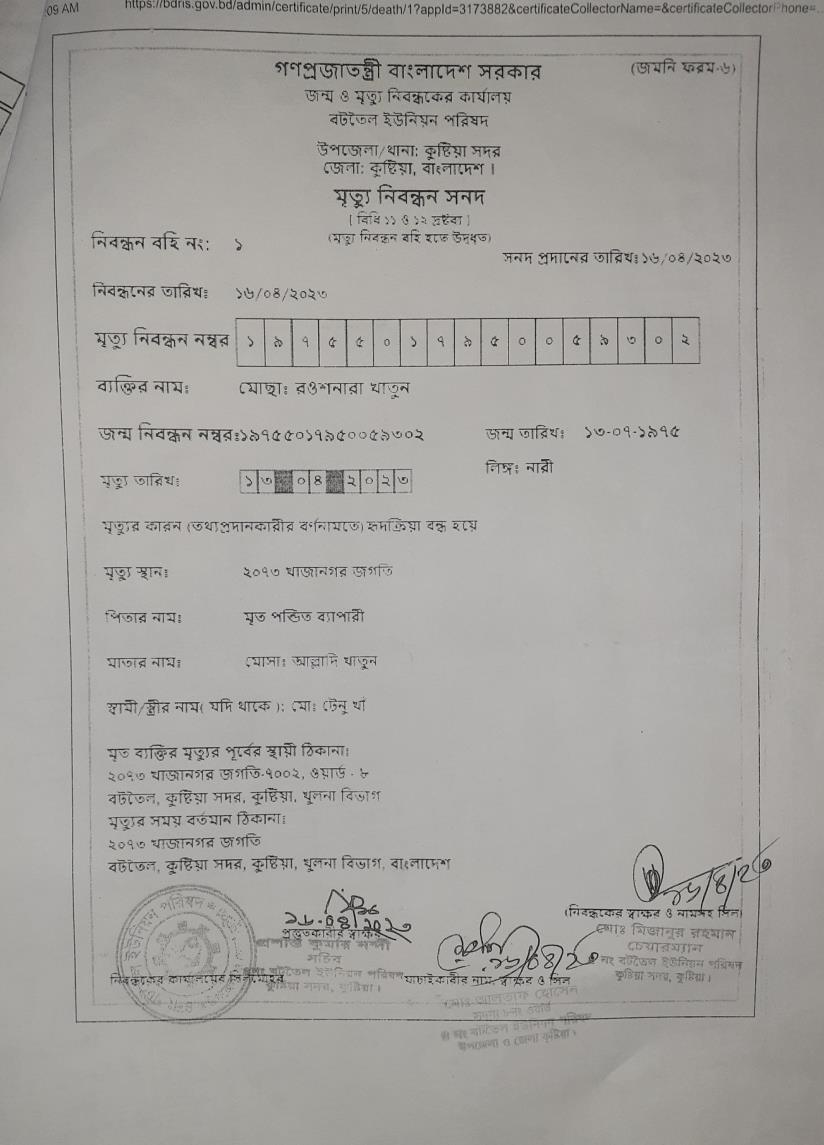 :09 AM https://bdris.gov.bd/admin/certificate/print/5/death/1?appId=3173882&certificateCollectorName=&certificateCollectorPhone=...
গণপ্রজাতন্ত্রী বাংলাদেশ সরকার (জমনি ফরম-৬)
জন্ম ও মৃত্যু নিবন্ধকের কার্যালয়
বটতৈল ইউনিয়ন পরিষদ
উপজেলা/থানা: কুষ্টিয়া সদর
জেলা: কুষ্টিয়া, বাংলাদেশ ।
মৃত্যু নিবন্ধন সনদ
[ বিধি ১১ ও ১২ দ্রষ্টব্য ]
(মৃত্যু নিবন্ধন বহি হতে উদ্ধৃত)
নিবন্ধন বহি নং: ১
সনদ প্রদানের তারিখ: ১৬/০৪/২০২৩
নিবন্ধনের তারিখঃ ১৬/০৪/২০২৩
মৃত্যু নিবন্ধন নম্বর ১ ৯ ৭ ৫ ৫ ০ ১ ৭ ৯ ৫ ০ ০ ৫ ৯ ৩ ০ ২
ব্যক্তির নাম: মোছা: রওশনারা খাতুন
জন্ম নিবন্ধন নম্বর:১৯৭৫৫০১৭৯৫০০৫৯৩০২ জন্ম তারিখ: ১৩-০৭-১৯৭৫
লিঙ্গ: নারী
মৃত্যু তারিখ: ১৩ ০৪ ২০২৩
মৃত্যুর কারন (তথ্যপ্রদানকারীর বর্ণনামতে) হৃদক্রিয়া বন্ধ হয়ে
মৃত্যু স্থান: ২০৭৩ খাজানগর জগতি
পিতার নাম: মৃত পন্ডিত ব্যাপারী
মাতার নাম: মোসা: আল্লাদি খাতুন
স্বামী/স্ত্রীর নাম( যদি থাকে ): মো: টেনু খাঁ
মৃত ব্যক্তির মৃত্যুর পূর্বের স্থায়ী ঠিকানা:
২০৭৩ খাজানগর জগতি-৭০০২, ওয়ার্ড - ৮
বটতৈল, কুষ্টিয়া সদর, কুষ্টিয়া, খুলনা বিভাগ
মৃত্যুর সময় বর্তমান ঠিকানা:
২০৭৩ খাজানগর জগতি
বটতৈল, কুষ্টিয়া সদর, কুষ্টিয়া, খুলনা বিভাগ, বাংলাদেশ
১৬/৪/২৩
(নিবন্ধকের স্বাক্ষর ও নামসহ সিল)
মোঃ মিজানুর রহমান
চেয়ারম্যান
নং বটতৈল ইউনিয়ন পরিষদ
কুষ্টিয়া সদর, কুষ্টিয়া।
১৬-০৪/২০২৩
প্রস্তুতকারীর স্বাক্ষর
কুমার
সচিব
নং বটতৈল ইউনিয়ন পরিষদ
কুষ্টিয়া সদর, কুষ্টিয়া।
ইউনিয়ন পরিষদ
নিবন্ধকের কার্যালয়ের সিলমোহর
১৬/০৪/২৩
যাচাইকারীর নাম, স্বাক্ষর ও সিল
মোঃ আলতাফ হোসেন
নং বটতৈল ইউনিয়ন পরিষদ
উপজেলা ও জেলা কুষ্টিয়া।